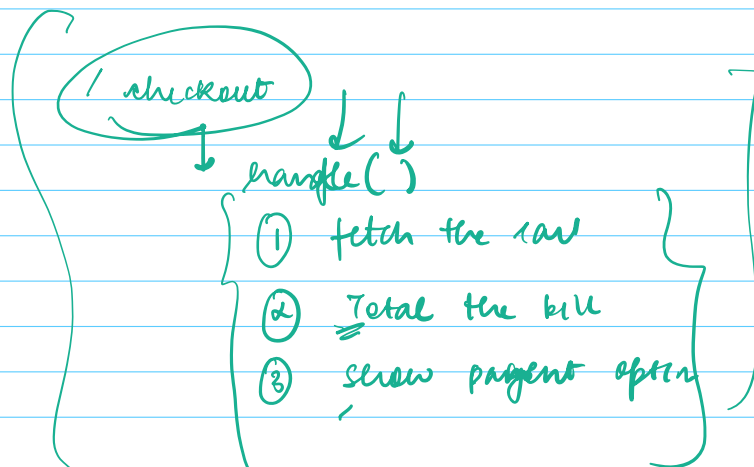 / checkout
handle( )
① fetch the cart
② Total the bill
③ show payment option